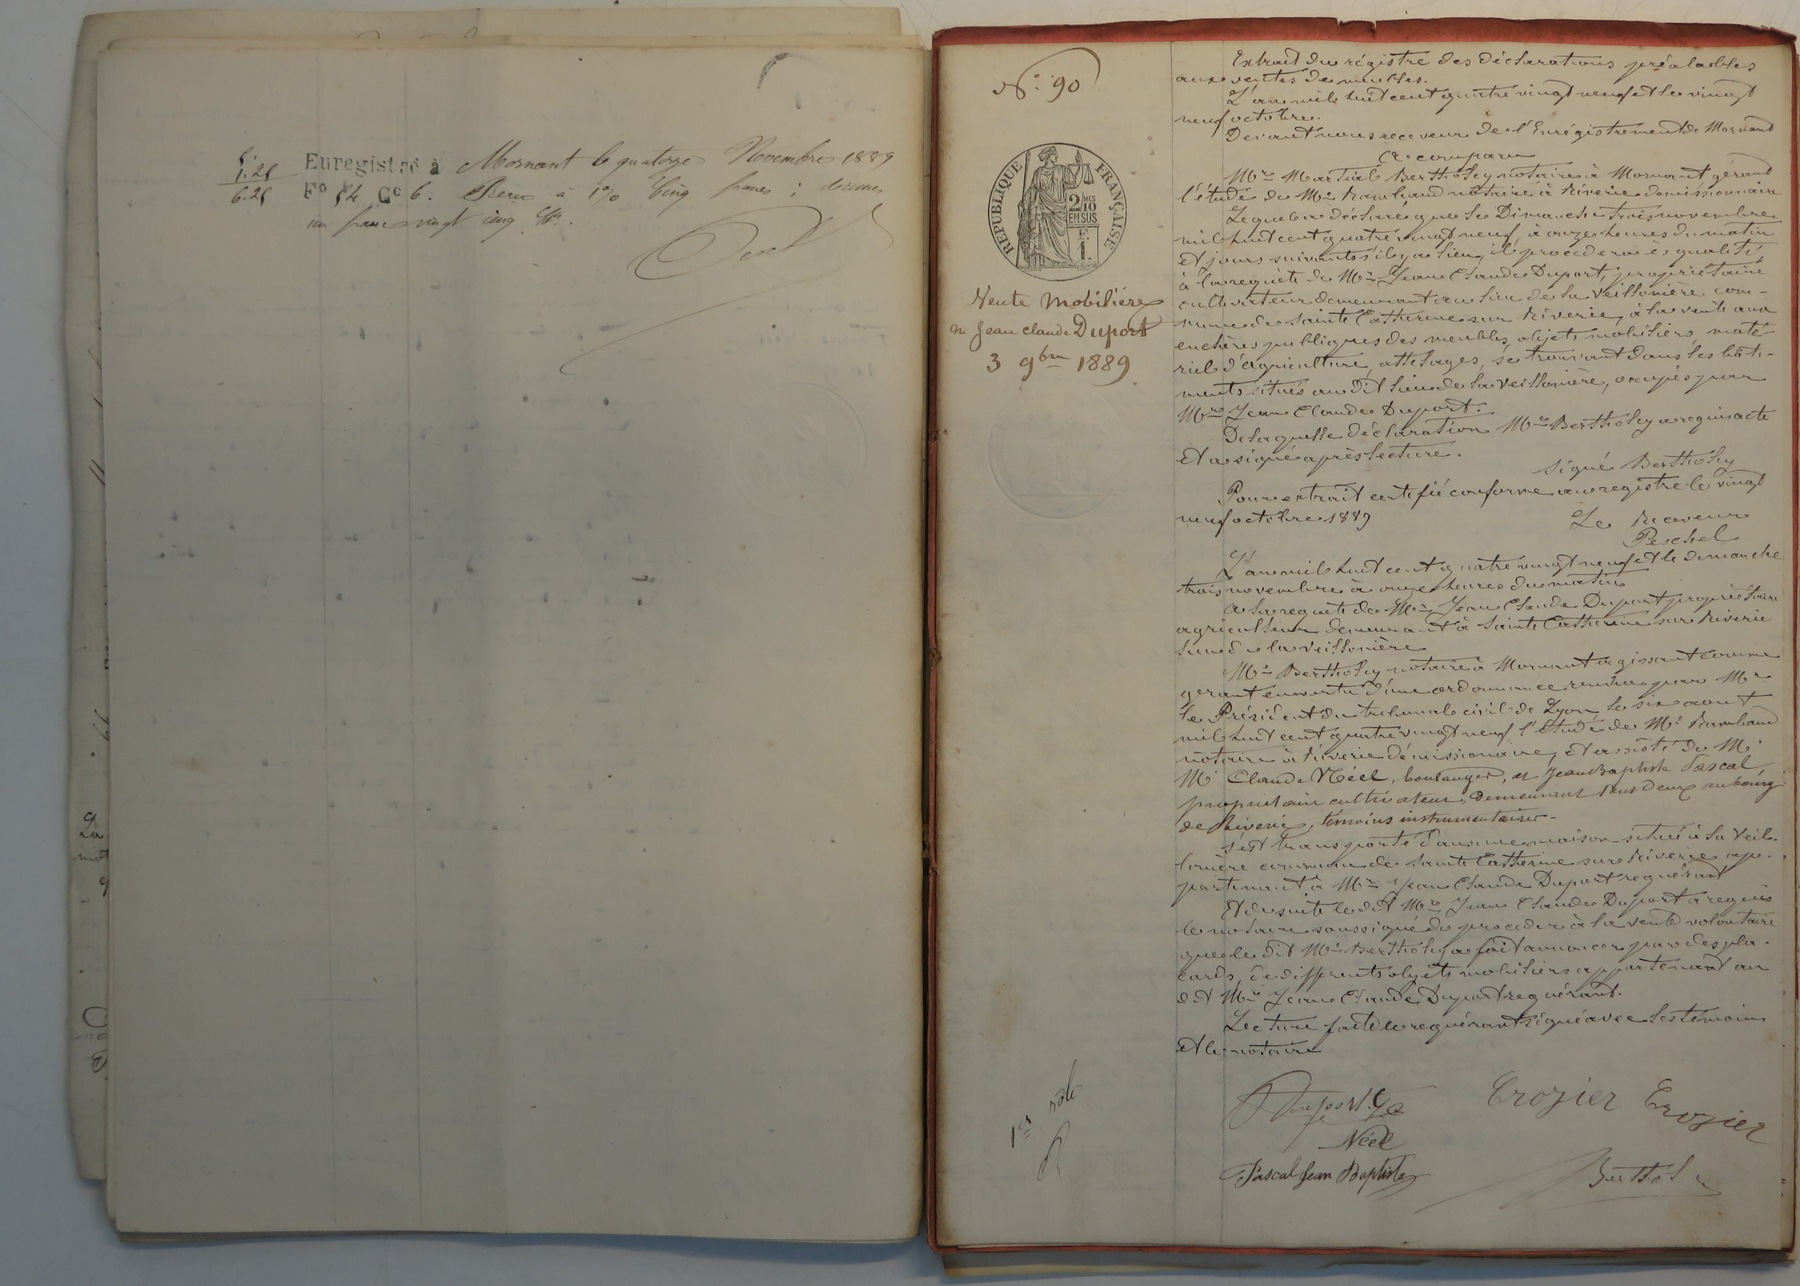 5.25
6.25
Enregistré à Mornant le quatorze Novembre 1889
Fo 54 Cc 6. Reçu à 1% Cinq francs ; décimes
un franc vingt cinq
No 90
RÉPUBLIQUE FRANÇAISE
2 10MES
EN SUS
1F.
Vente Mobilière
Mr Jean Claude Duport
3 9bre 1889
Extrait du régistre des déclarations préalables
aux ventes de meubles.
L'an mil huit cent quatre vingt neuf et le vingt
neuf octobre.
Devant nous receveur de l'Enrégistrement de Mornant
a comparu
Me Martial Bertholey notaire à Mornant gérant
l'étude de Me Rambaud notaire à Riverie démissionnaire
Lequel a déclaré que le Dimanche trois novembre
mil huit cent quatre vingt neuf à onze heures du matin
et jours suivants s'il y a lieu, il procédera ès qualité
à la requête de Mr Jean Claude Duport, propriétaire
cultivateur demeurant au lieu de la Veillonière com-
mune de Sainte Catherine sur Riverie, à la vente aux
enchères publiques des meubles, objets mobiliers, maté-
riel d'agriculture, attelages, se trouvant dans les bâti-
ments situés au dit lieu de la Veillonière, occupés par
Mr Jean Claude Duport.
De laquelle déclaration Me Bertholey a requis acte
et a signé après lecture.
Signé Bertholey
Pour extrait certifié conforme au registre le vingt
neuf octobre 1889
Le Receveur
Peschel
L'an mil huit cent quatre vingt neuf et le dimanche
trois novembre à onze heures du matin
A la requête de Mr Jean Claude Duport propriétaire
agriculteur demeurant à Sainte Catherine sur Riverie
lieu de la Veillonière
Me Bertholey notaire à Mornant agissant comme
gérant en vertu d'une ordonnance rendue par Mr
le Président du tribunal civil de Lyon le six aout
mil huit cent quatre vingt neuf, l'étude de Me Rambaud
notaire à Riverie démissionnaire, et assisté de M
M Claude Néel, boulanger, et Jean Baptiste Pascal
propriétaire cultivateur, demeurant tous deux au bourg
de Riverie, témoins instrumentaires
s'est transporté dans une maison située à la Veil-
lonière commune de Sainte Catherine sur Riverie ap-
partenant à Mr Jean Claude Duport requérant
Et de suite le dit Mr Jean Claude Duport a requis
le notaire soussigné de procéder à la vente volontaire
que le dit Me Bertholey a fait annoncer par des pla-
cards, de différents objets mobiliers appartenant au
dit Mr Jean Claude Duport requérant.
Lecture faite le requérant signé avec les témoins
et le notaire
Duport Crozier Crozier
Néel
Pascal Jean Baptiste Bertholey
1er rôle